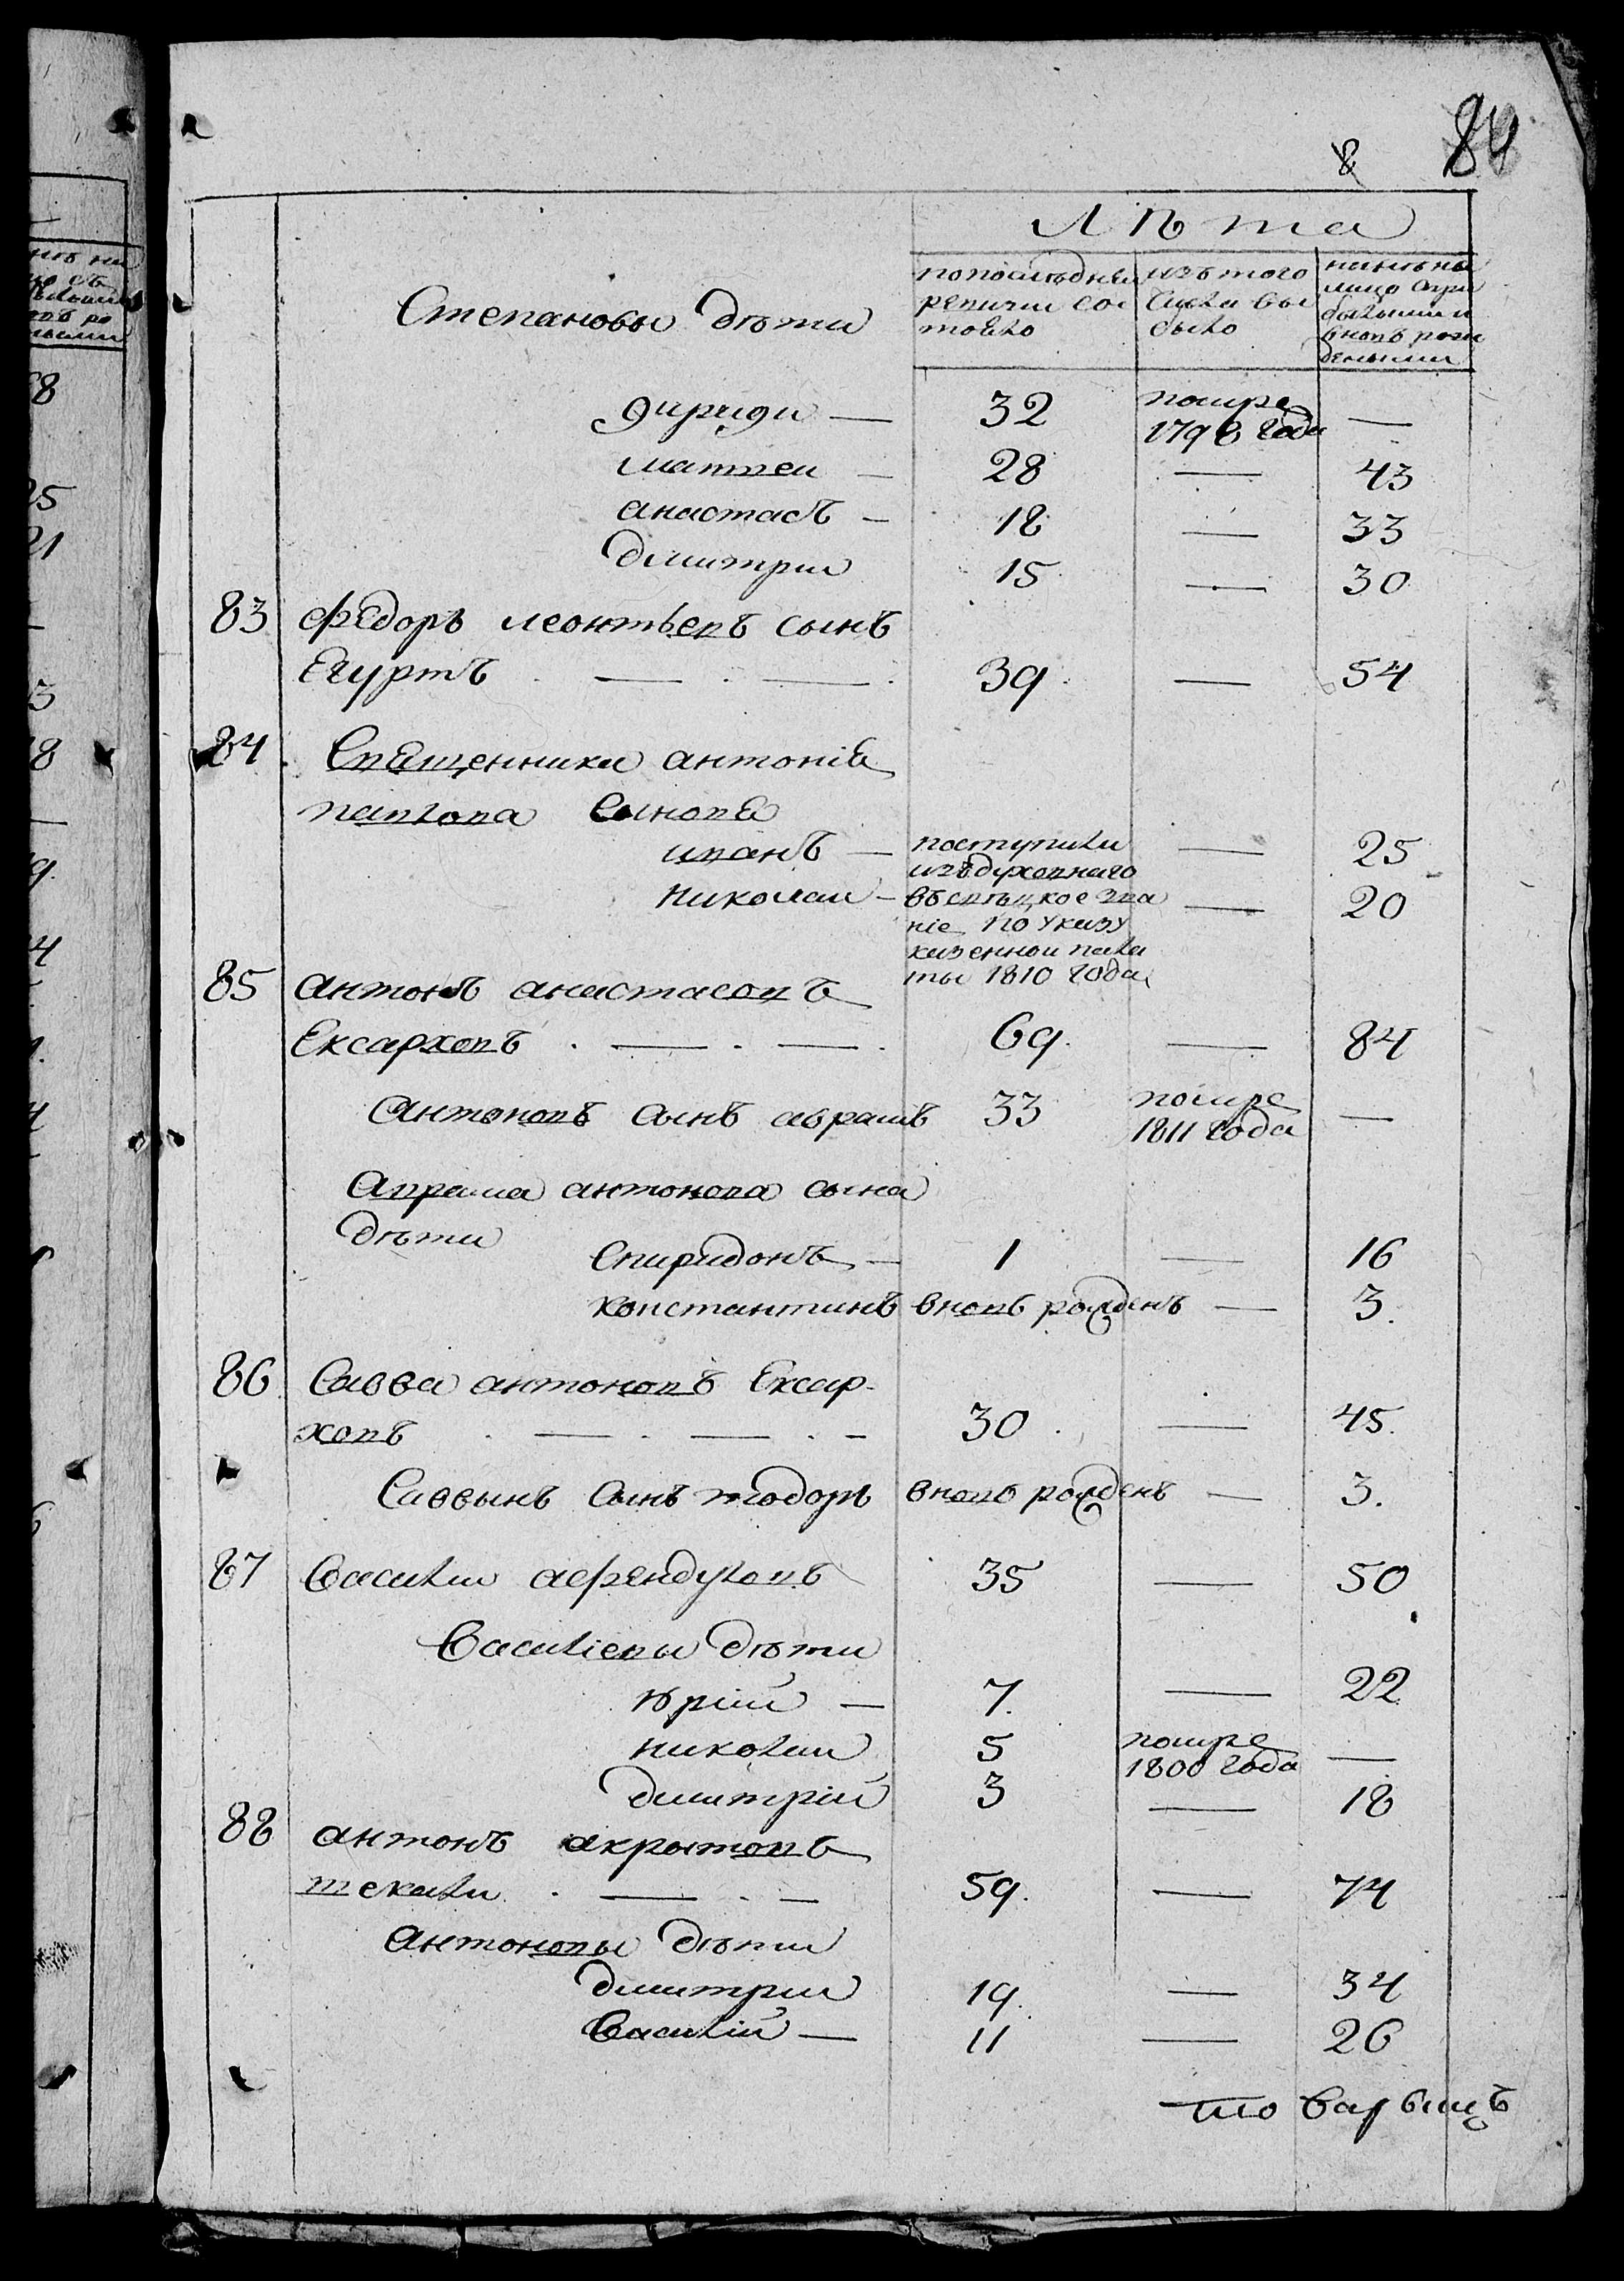 8 84
Лѣта
Степановы дѣти
по последней ревизии состояло
изъ того числа выбыло
ныне на лицо с прибылыми и вновь рожденными
32 помре 1798 года —
матвеи — 28 — 43
анастасъ — 18 — 33
дмитрии 15 — 30
83 Федоръ леонтьевъ сынъ
Егуртъ 39 — 54
84 Священника антонія
павлова Сыновя
иванъ — поступили изъ духовнаго — 25
николаи — въ свѣцкое званіе по указу казенной палаты 1810 года — 20
85 антонъ анастасовъ
Ексарховъ 69 — 84
антоновъ сынъ аврамъ 33 помре 1811 года —
аврама антонова сына
дѣти
Спиридонъ — 1 — 16
константинъ вновь рожденъ — 3.
86 Савва антоновъ Ексар-
ховъ 30 — 45.
Саввынъ сынъ тодоръ вновь рожденъ — 3.
87 Василии афендуловъ 35 — 50
Василіевы дѣти
юрій — 7. — 22
николаи 5 помре 1800 года —
дмитрій 3 — 18
88 антонъ акрытовъ
текели 59. — 74
антоновы дѣти
дмитрии 19. — 34
Василій — 11 — 26